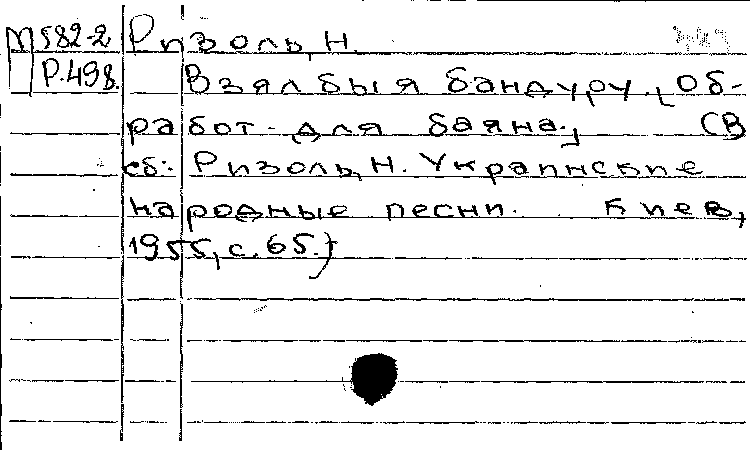 М582-2 Ризоль, Н.
Р.498. Взял бы я бандуру. [Об-
работ. для баяна.] (В
сб: Ризоль, Н. Украинские
народные песни. Киев,
1955, с. 65.)